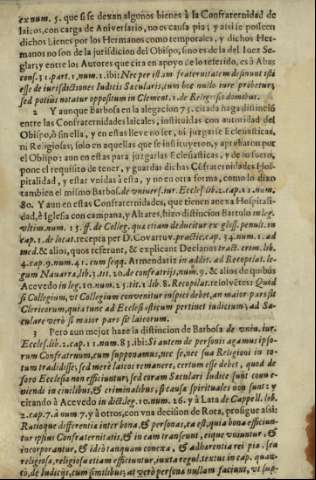 ex num. 5. que si se dexan algonos bienes à la Confraternidad de
laicos, con carga de Aniversario, no es causa pia; y assi se posseen
dichos bienes por los Hermanos como temporales, y dichos Her-
manos no son de la jurisdicion del Obispo, sino es de la del Juez Se-
glar; y entre los Autores que cita en apoyo de lo referido, es à Abas
conf. 31. part. 1. num. 2. ibi: Nec per istam fraternitatem desinunt isti
esse de iurisdictiones Iudicis Sacularis, cum hoc nullo iure probetur,
sed potius notatur oppositum in Clement. 1. de Religiosis domibus.
2 Y aunque Barbosa en la alegacion 75. citada haga distinció
entre las Confraternidades laicales, instituidas con autoridad del
Obispo, ò sin ella, y en estas lleve no ser, ni juzgarse Eclesiasticas,
ni Religiosas, solo en aquellas que se instituyeron, y aprobaron por
el Obispo: aun en estas para juzgarlas Eclesiasticas, y de su fuero,
pone el requisito de tener, y guardar dichas Cōfraternidades Hos-
pitalidad, y estar veidas à esta, y no en otra forma, como lo dixo
tambien el mismo Barbos. de univers. iur. Eccles. lib. 2. cap. 11. num.
80. Y aun en estas Confraternidades, que tienen anexa Hospitali-
dad, è Iglesia con campana, y Altares, hizo distincion Bartulo in leg.
vltim. num. 15. ff. de Colleg. qua etiam deducitur ex gloss. penult. in
cap. 1. de locat. recepta per D. Covarruv. practic. cap. 34. num. 2. ad
med. & alios, quos referunt, & explicant Decianus tract. crim. lib.
4. cap. 9. num. 41. cum seqq. Armendariz in addit. ad Recopilat. le-
gum Navarra, lib. 3. tit. 20. de confratrijs, num. 9. & alios de quibus
Acevedo in leg. 10. num. 25. tit. 1. lib. 8. Recopilat. resolvētes: Quod
si Collegium, vt Collegium convenitur inspici debet, an maior pars sit
Clericorum, quia tunc ad Ecclesiasticum pertinet iudicium; ad Sa-
culare verò si maior pars sit laicorum.
3 Pero aun mejor haze la distincion de Barbosa de univ. iur.
Eccles. lib. 2. cap. 11. num. 83. ibi: Si autem de personis agamus ipso-
rum Confratrum, cum supponamus, nec se, nec sua Religioni in to-
tum tradidisse; sed merè laicos remanere, certum esse debet, quod de
foro Ecclesia non efficiuntur, sed coram Saculari Iudice sunt conve-
niendi in civilibus, & criminalibus, si causa spirituales non sunt: y
citando à Acevedo in dict. leg. 10. num. 26. y à Lata de Cappell. lib.
2. cap. 7. à num. 7. y à otros, con vna decision de Rota, prosigue assi:
Ratioque differentia inter bona, & personas, ea est, quia bona efficiun-
tur ipsius Confraternitatis, & in eam transeunt, eique vniuntur, &
incorporantur, & ideò tanquam conexa, & adharentia rei pia, seu
religiosa, religiosa etiam efficiuntur, iuxta regul. textus in cap. quan-
tò, de Iudicijs, cum similibus; at verò persona nullam faciunt, vt sup-